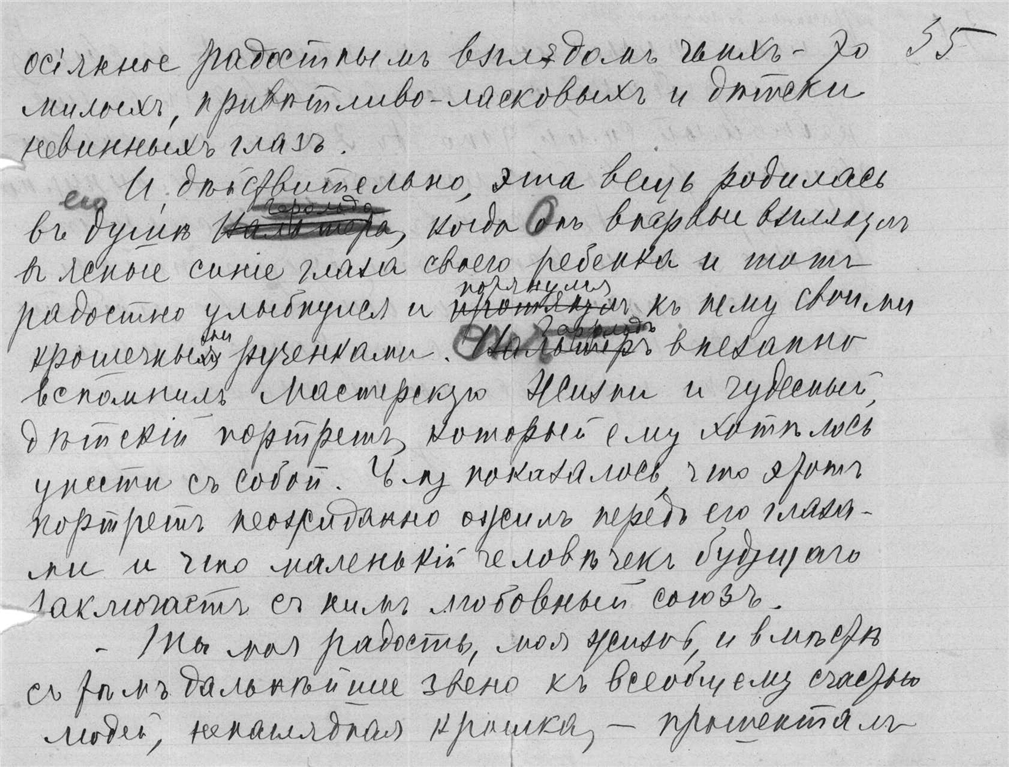 35
осіянное радостнымъ взглядомъ чьихъ-то
милыхъ, привѣтливо-ласковыхъ и дѣтски
невинныхъ глазъ.
И, дѣйствительно, эта вещь родилась
въ его душѣ, когда Онъ впервые взглянулъ
въ ясные синіе глаза своего ребенка и тотъ
радостно улыбнулся и потянулся къ нему своими
крошечными рученками. Онъ внезапно
вспомнилъ Мастерскую Жизни и чудесный,
дѣтскій портретъ, который ему хотѣлось
унести съ собой. Ему показалось, что этотъ
портретъ неожиданно ожилъ передъ его глаза-
ми и что маленькій человѣчекъ будущаго
заключаетъ съ нимъ любовный союзъ.
- Ты моя радость, моя жизнь, и вмѣстѣ
съ тѣмъ дальнѣйшее звено къ всеобщему счастью
людей, ненаглядная крошка, — прошепталъ